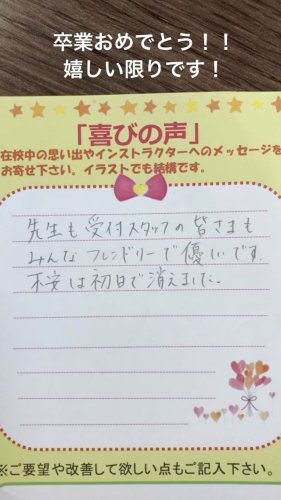 卒業おめでとう！！
嬉しい限りです！
「喜びの声」
在校中の思い出やインストラクターへのメッセージを
お寄せ下さい。イラストでも結構です。
先生も受付スタッフの皆さまも
みんなフレンドリーで優しいです。
不安は初日で消えました。
※ご要望や改善して欲しい点もご記入下さい。